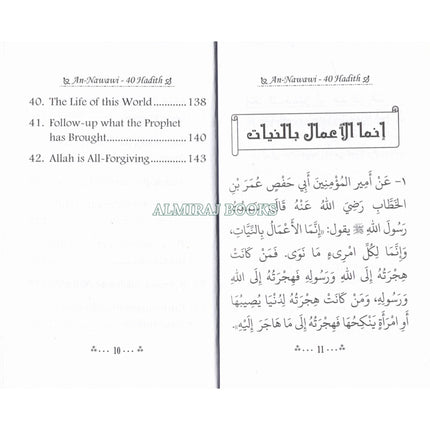 An-Nawawi - 40 Hadith
40. The Life of this World............138
41. Follow-up what the Prophet
has Brought.......................140
42. Allah is All-Forgiving............143
10
An-Nawawi - 40 Hadith
إنما الأعمال بالنيات
١- عَنْ أَمِيرِ المُؤْمِنِينَ أَبِي حَفْصٍ عُمَرَ بْنِ
الخَطَّابِ رَضِيَ اللهُ عَنْهُ قَالَ:
رَسُولَ اللهِ ﷺ يقول: «إِنَّمَا الأَعْمَالُ بِالنِّيَّاتِ،
وَإِنَّمَا لِكُلِّ امْرِىءٍ مَا نَوَى. فَمَنْ كَانَتْ
هِجْرَتُهُ إِلَى اللهِ وَرَسُولِهِ فَهِجْرَتُهُ إِلَى اللهِ
وَرَسُولِهِ، وَمَنْ كَانَتْ هِجْرَتُهُ لِدُنْيَا يُصِيبُهَا
أَوِ امْرَأَةٍ يَنْكِحُهَا فَهِجْرَتُهُ إِلَى مَا هَاجَرَ إِلَيْهِ».
11
ALMIRAJ BOOKS